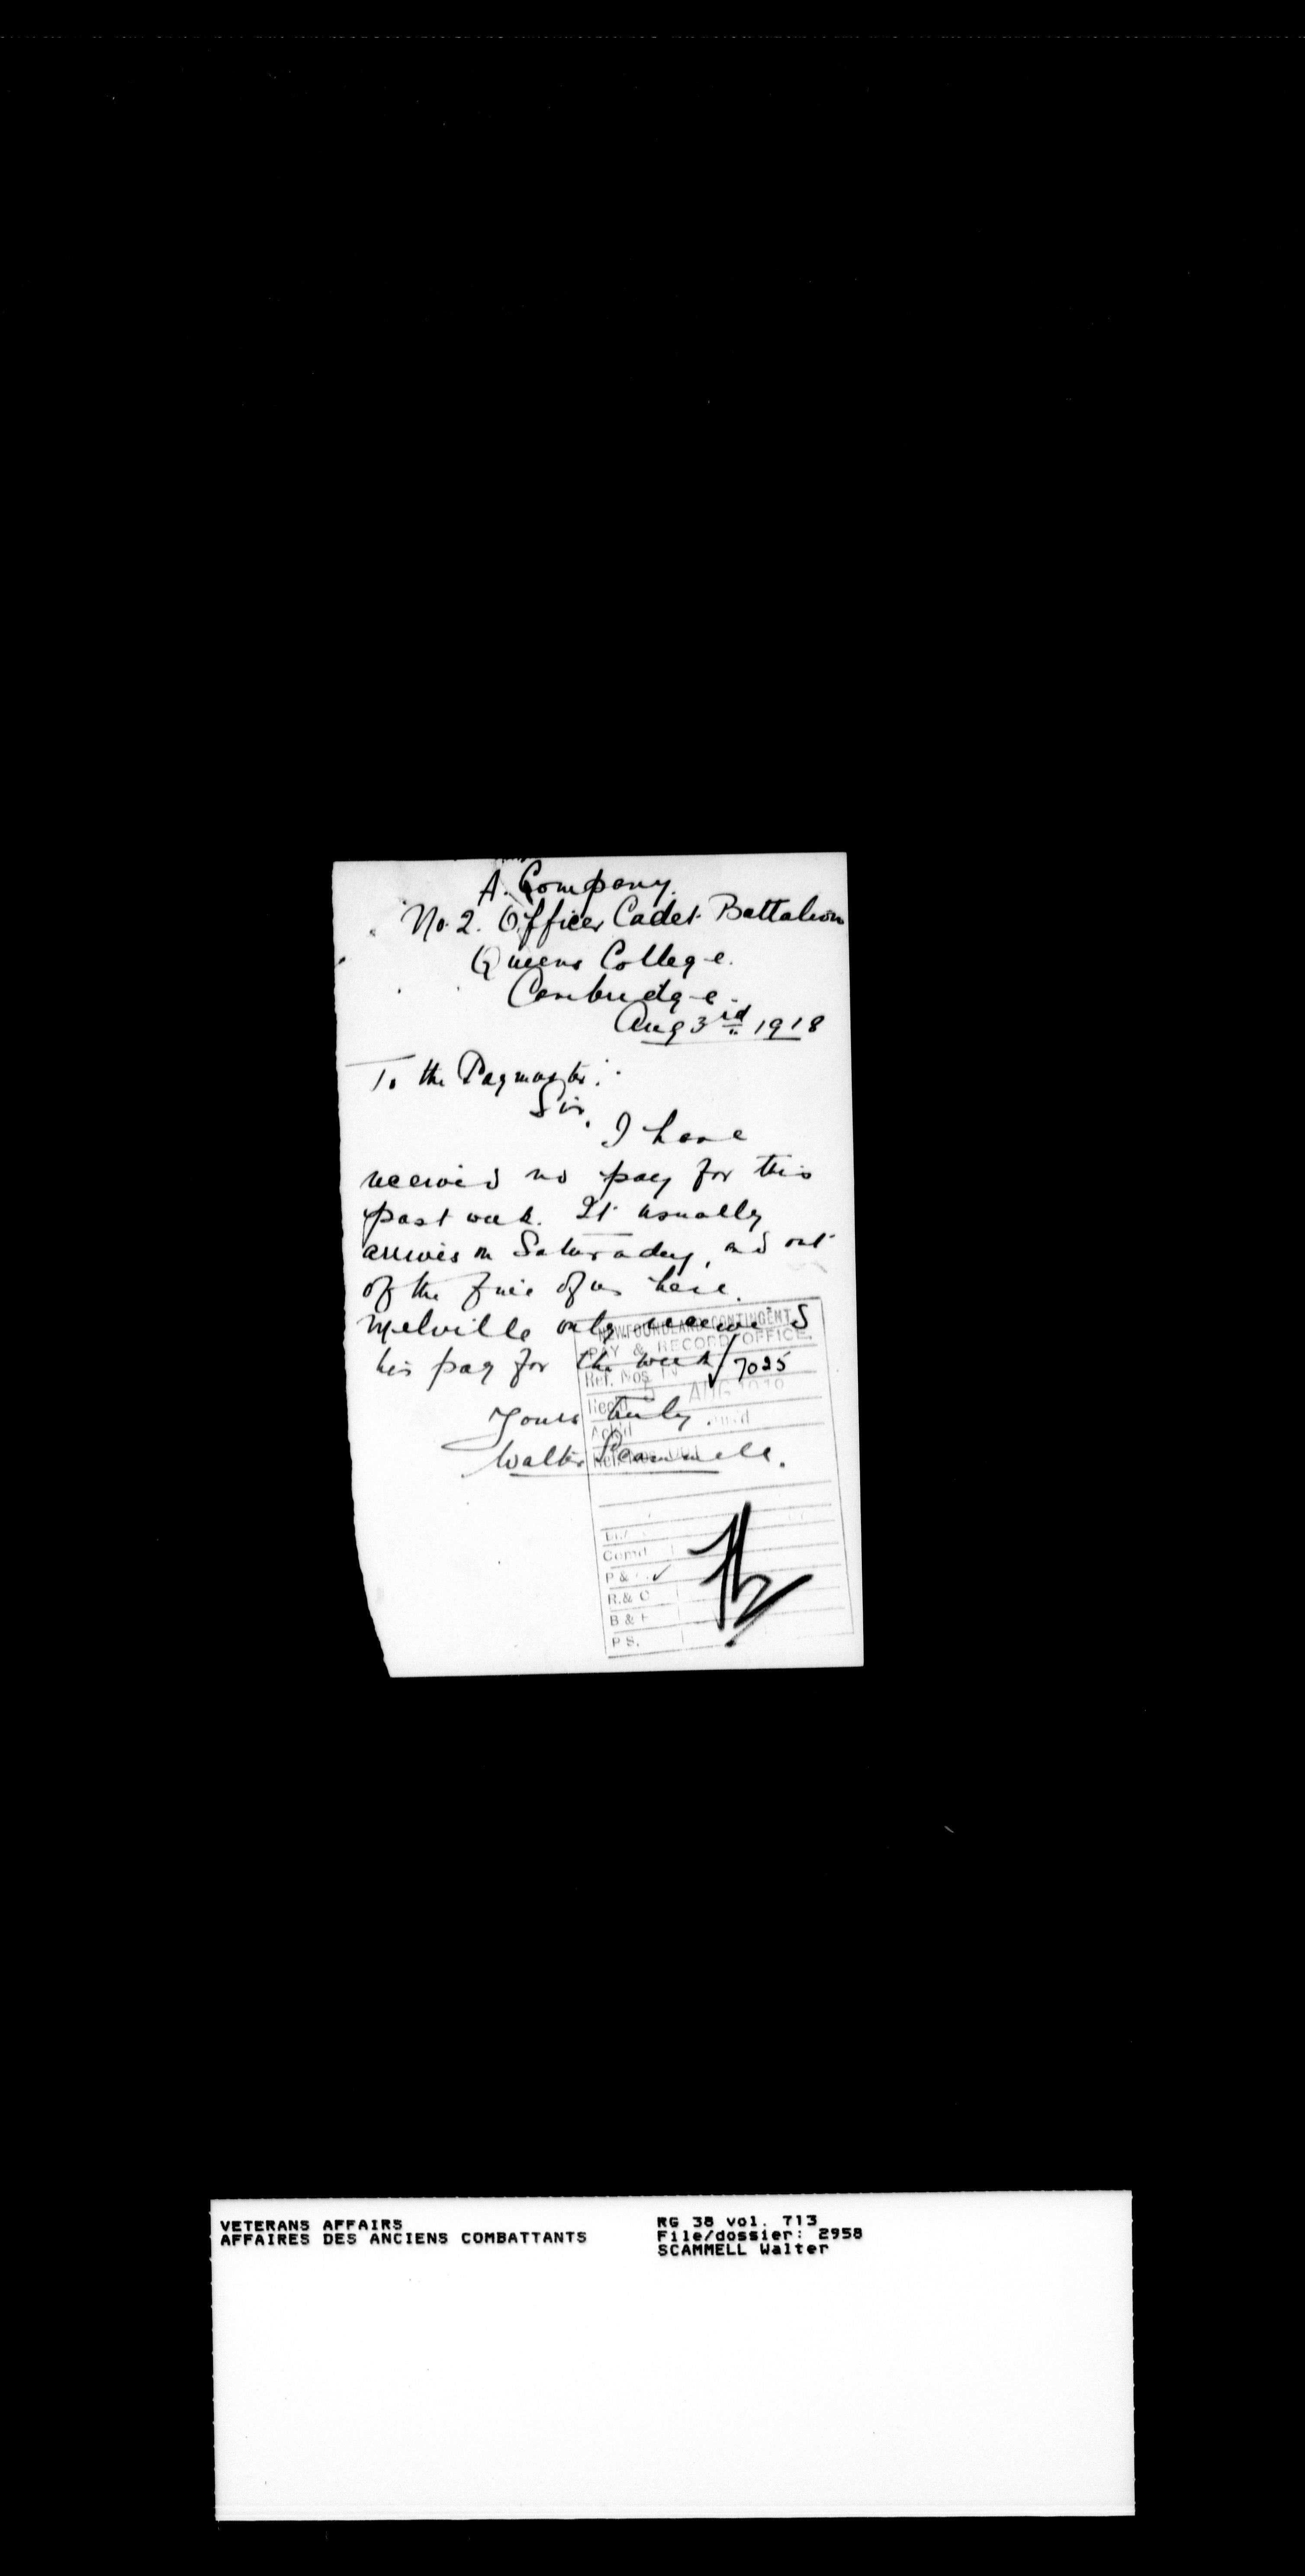 A. Company.
No. 2. Officer Cadet Battalion
Queens College.
Cambridge.
Aug 3rd 1918
To the Paymaster.
Sir,
I have
received no pay for this
past week. It usually
arrives on Saturaday, and out
of the five of us here.
Melville only received
his pay for the week
7025
Yours truly
Walter Scammell.
NEWFOUNDLAND CONTINGENT
PAY & RECORD OFFICE.
Ref. Nos. IN
Recd. 5 AUG 1918
Ackd
Comd
P &
R. &
B &
P S.
VETERANS AFFAIRS
AFFAIRES DES ANCIENS COMBATTANTS
RG 38 vol. 713
File/dossier: 2958
SCAMMELL Walter